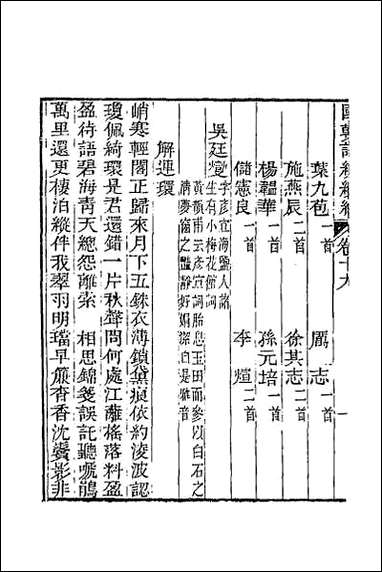 國朝詞綜續編 卷十九 一
葉九苞一首 厲 志一首
施燕辰二首 徐其志二首
楊韞華一首 孫元培一首
儲憲良一首 李 煊二首
吳廷燮字彥宣海鹽人諸
生有小梅花館詞
黃韻甫云彥宣詞胎息玉田而參以白石之
清夢窗之豔靜好娟深自是雅音
解連環
峭寒輕閣正歸來月下五銖衣薄鎖黛痕依約淩波認
瓊佩綺環是君還錯一片秋聲問何處江蘺搖落料盈
盈待語碧海青天總怨離索 相思錦箋誤託聽啼鵑
萬里還更棲泊縱伴我翠羽明璫早簾杳香沈鬢影非